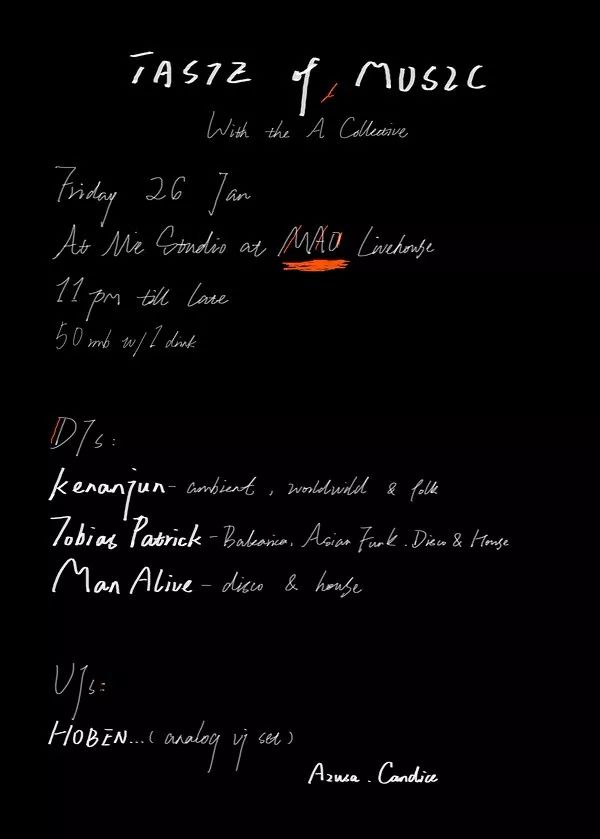 TASTE of MUSIC
With the A Collective
Friday 26 Jan
At Me Studio at MAO Livehouse
11 pm till late
50 rmb w/1 drink
DJs:
Kenanjun - ambient, worldwild & folk
Tobias Patrick - Balearica, Asian Funk. Disco & House
Man Alive - disco & house
VJs:
HOBEN...(analog vj set)
Azusa. Candice